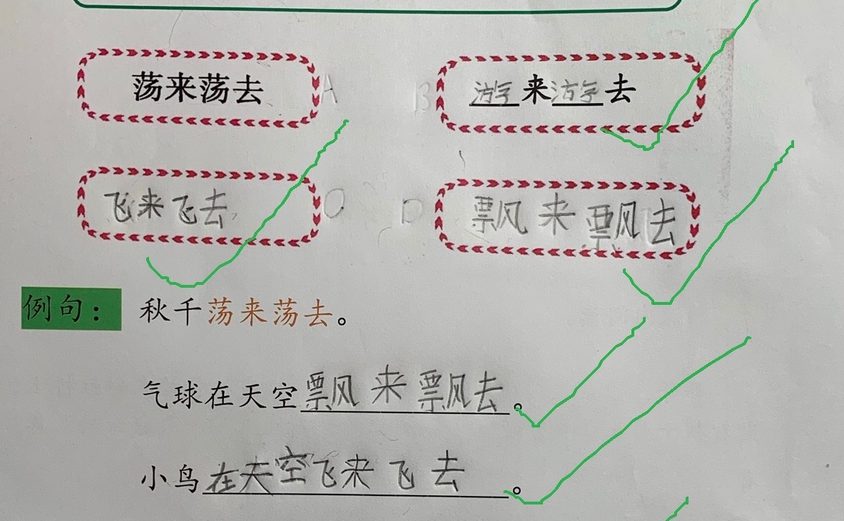 荡来荡去 A B 游来游去
飞来飞去 D 飘来飘去
例句： 秋千荡来荡去。
气球在天空飘来飘去。
小鸟在天空飞来飞去。